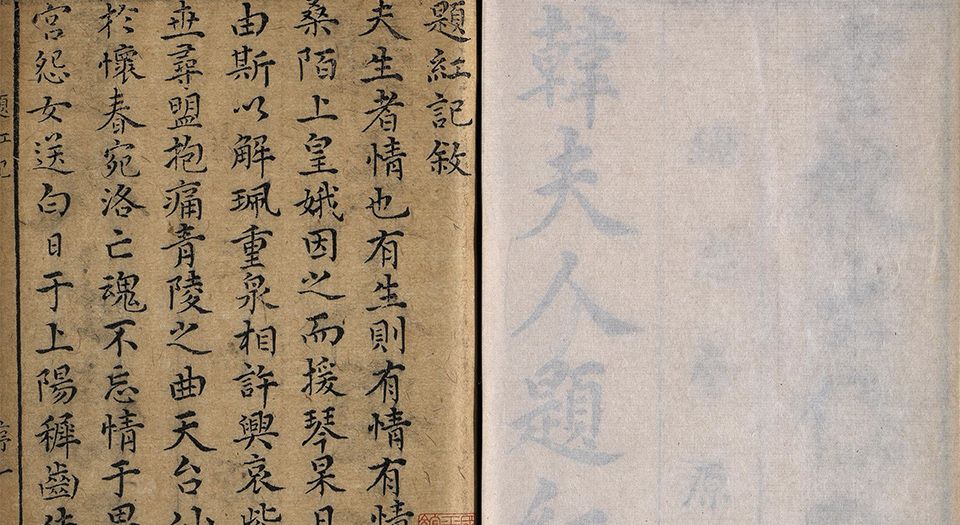 韓夫人題紅
題紅記敘
夫生者情也有生則有情有情
桑陌上皇娥因之而援琴杲日
由斯以解珮重泉相許興哀紫
世尋盟抱痛青陵之曲天台仙
於懷春宛洛亡魂不忘情于思
宮怨女送白日于上陽穉齒
題紅記 序一